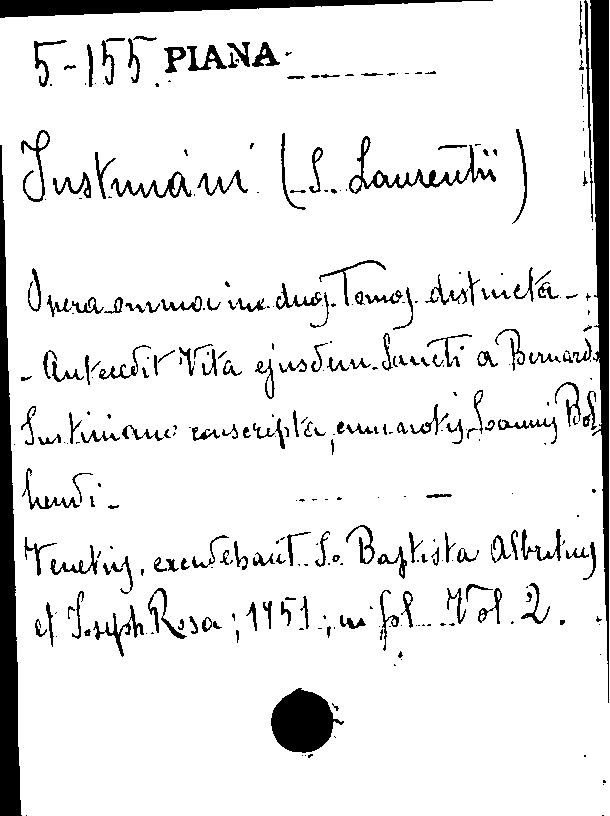 5-155 PIANA
Justiniani (S. Laurentii)
Opera omnia in duos Tomos districta -
- Antecedit Vita ejusdem Sancti a Bernardo
Justiniano conscripta, cum notis Joannis Bol
handi -
Venetiis, excudebant Jo. Baptista Albritius
et Joseph Rosa; 1751; in fol. Vol. 2.